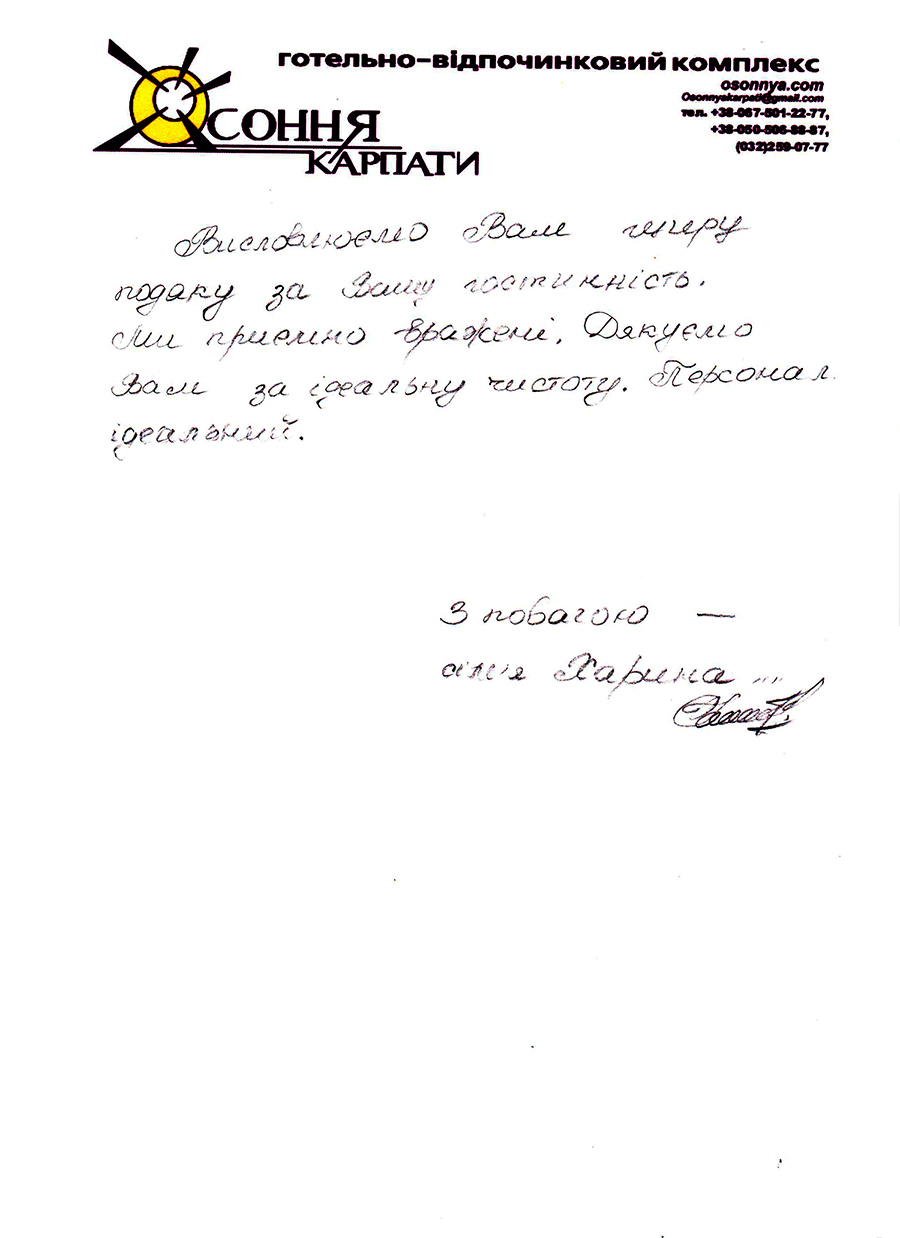 готельно-відпочинковий комплекс
ОСОННЯ
КАРПАТИ
osonnya.com
Osonnyakarpati@gmail.com
тел. +38-067-501-22-77,
+38-050-506-88-87,
(032)259-07-77
Висловлюємо Вам щиру
подяку за Вашу гостинність.
Ми приємно вражені. Дякуємо
Вам за ідеальну чистоту. Персонал
ідеальний.
З повагою —
сім'я Харина ...